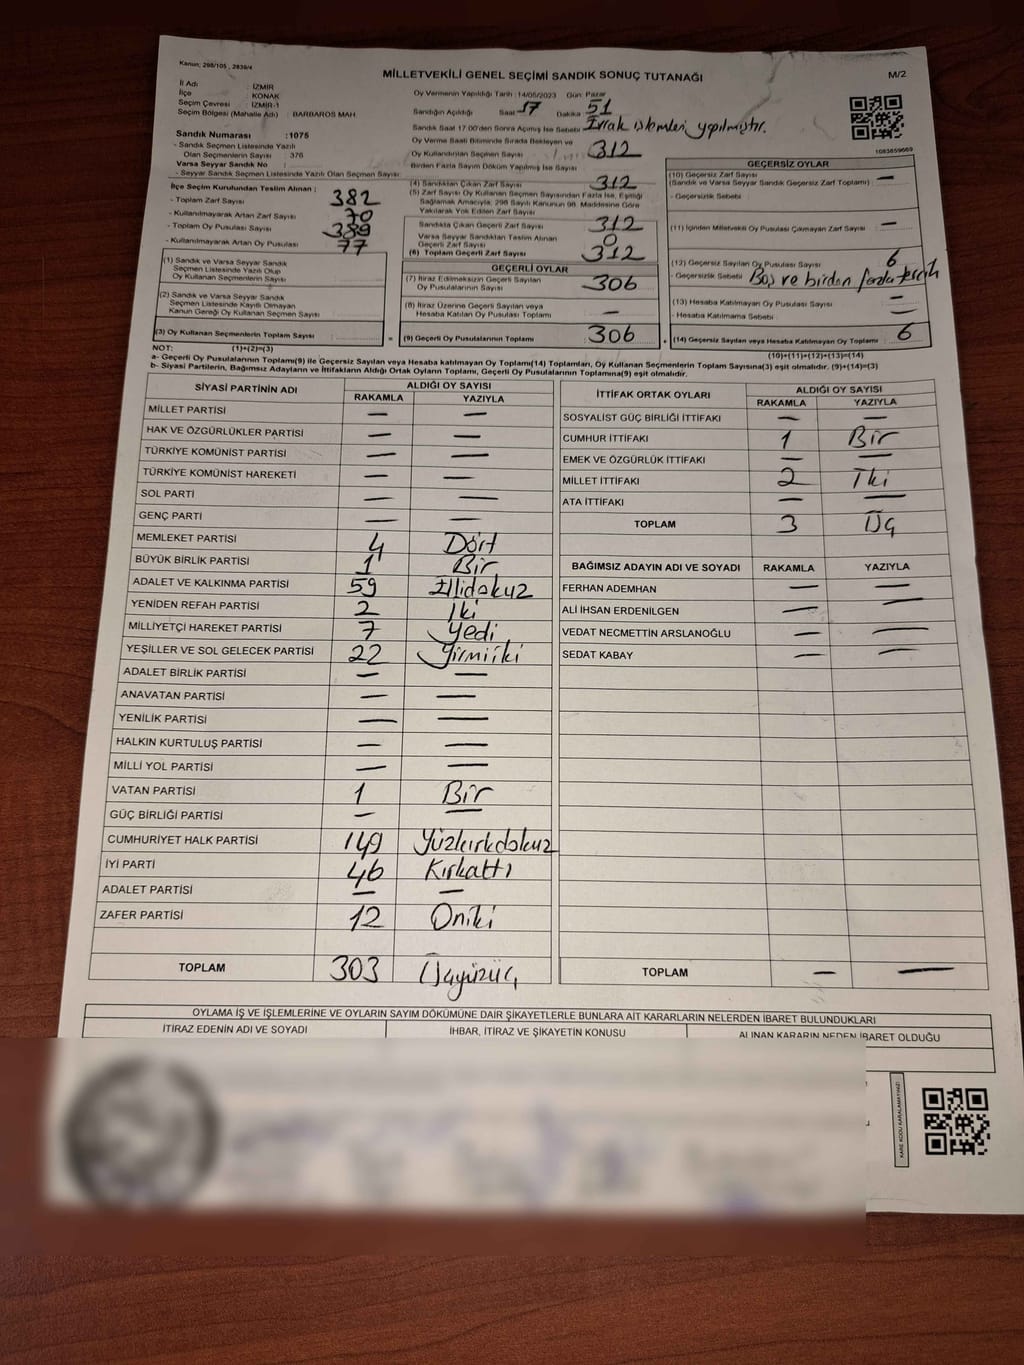 Kanun; 298/105 , 2839/4
MİLLETVEKİLİ GENEL SEÇİMİ SANDIK SONUÇ TUTANAĞI
M/2
İl Adı : İZMİR
İlçe : KONAK
Seçim Çevresi : İZMİR-1
Seçim Bölgesi (Mahalle Adı) : BARBAROS MAH.
Sandık Numarası : 1075
- Sandık Seçmen Listesinde Yazılı
Olan Seçmenlerin Sayısı : 376
Varsa Seyyar Sandık No :
- Seyyar Sandık Seçmen Listesinde Yazılı Olan Seçmen Sayısı:
İlçe Seçim Kurulundan Teslim Alınan ;
- Toplam Zarf Sayısı 382
- Kullanılmayarak Artan Zarf Sayısı 70
- Toplam Oy Pusulası Sayısı 389
- Kullanılmayarak Artan Oy Pusulası 77
(1) Sandık ve Varsa Seyyar Sandık
Seçmen Listesinde Yazılı Olup
Oy Kullanan Seçmenlerin Sayısı
(2) Sandık ve Varsa Seyyar Sandık
Seçmen Listesinde Kayıtlı Olmayan
Kanun Gereği Oy Kullanan Seçmen Sayısı
(3) Oy Kullanan Seçmenlerin Toplam Sayısı
Oy Vermenin Yapıldığı Tarih : 14/05/2023 Gün: Pazar
Sandığın Açıldığı Saat 17 Dakika 51
Sandık Saat 17.00'den Sonra Açılmış İse Sebebi Evrak işlemleri yapılmıştır.
Oy Verme Saati Bitiminde Sırada Bekleyen ve
Oy Kullandırılan Seçmen Sayısı 312
Birden Fazla Sayım Döküm Yapılmış İse Sayısı
(4) Sandıktan Çıkan Zarf Sayısı 312
(5) Zarf Sayısı Oy Kullanan Seçmen Sayısından Fazla İse, Eşitliği
Sağlamak Amacıyla, 298 Sayılı Kanunun 98. Maddesine Göre
Yakılarak Yok Edilen Zarf Sayısı
Sandıkta Çıkan Geçerli Zarf Sayısı 312
Varsa Seyyar Sandıktan Teslim Alınan
Geçerli Zarf Sayısı 0
(6) Toplam Geçerli Zarf Sayısı 312
GEÇERLİ OYLAR
(7) İtiraz Edilmeksizin Geçerli Sayılan
Oy Pusulalarının Sayısı 306
(8) İtiraz Üzerine Geçerli Sayılan veya
Hesaba Katılan Oy Pusulası Toplamı —
= (9) Geçerli Oy Pusulalarının Toplamı 306
1083659669
GEÇERSİZ OYLAR
(10) Geçersiz Zarf Sayısı —
(Sandık ve Varsa Seyyar Sandık Geçersiz Zarf Toplamı)
- Geçersizlik Sebebi
(11) İçinden Milletvekili Oy Pusulası Çıkmayan Zarf Sayısı —
(12) Geçersiz Sayılan Oy Pusulası Sayısı 6
- Geçersizlik Sebebi Boş ve birden fazla tercih
(13) Hesaba Katılmayan Oy Pusulası Sayısı —
- Hesaba Katılmama Sebebi : —
+ (14) Geçersiz Sayılan veya Hesaba Katılmayan Oy Toplamı : 6
NOT: (1)+(2)=(3)
(10)+(11)+(12)+(13)=(14)
a- Geçerli Oy Pusulalarının Toplamı(9) ile Geçersiz Sayılan veya Hesaba katılmayan Oy Toplamı(14) Toplamları, Oy Kullanan Seçmenlerin Toplam Sayısına(3) eşit olmalıdır. (9)+(14)=(3)
b- Siyasi Partilerin, Bağımsız Adayların ve İttifakların Aldığı Ortak Oyların Toplamı, Geçerli Oy Pusulalarının Toplamına(9) eşit olmalıdır.
SİYASİ PARTİNİN ADI ALDIĞI OY SAYISI
RAKAMLA YAZIYLA
MİLLET PARTİSİ — —
HAK VE ÖZGÜRLÜKLER PARTİSİ — —
TÜRKİYE KOMÜNİST PARTİSİ — —
TÜRKİYE KOMÜNİST HAREKETİ — —
SOL PARTİ — —
GENÇ PARTİ — —
MEMLEKET PARTİSİ 4 Dört
BÜYÜK BİRLİK PARTİSİ 1 Bir
ADALET VE KALKINMA PARTİSİ 59 Ellidokuz
YENİDEN REFAH PARTİSİ 2 İki
MİLLİYETÇİ HAREKET PARTİSİ 7 Yedi
YEŞİLLER VE SOL GELECEK PARTİSİ 22 Yirmiiki
ADALET BİRLİK PARTİSİ — —
ANAVATAN PARTİSİ — —
YENİLİK PARTİSİ — —
HALKIN KURTULUŞ PARTİSİ — —
MİLLİ YOL PARTİSİ — —
VATAN PARTİSİ 1 Bir
GÜÇ BİRLİĞİ PARTİSİ — —
CUMHURİYET HALK PARTİSİ 149 Yüzkırkdokuz
İYİ PARTİ 46 Kırkaltı
ADALET PARTİSİ — —
ZAFER PARTİSİ 12 Oniki
TOPLAM 303 Üçyüzüç
İTTİFAK ORTAK OYLARI ALDIĞI OY SAYISI
RAKAMLA YAZIYLA
SOSYALİST GÜÇ BİRLİĞİ İTTİFAKI — —
CUMHUR İTTİFAKI 1 Bir
EMEK VE ÖZGÜRLÜK İTTİFAKI — —
MİLLET İTTİFAKI 2 İki
ATA İTTİFAKI — —
TOPLAM 3 Üç
BAĞIMSIZ ADAYIN ADI VE SOYADI RAKAMLA YAZIYLA
FERHAN ADEMHAN — —
ALİ İHSAN ERDENİLGEN — —
VEDAT NECMETTİN ARSLANOĞLU — —
SEDAT KABAY — —
TOPLAM — —
OYLAMA İŞ VE İŞLEMLERİNE VE OYLARIN SAYIM DÖKÜMÜNE DAİR ŞİKAYETLERLE BUNLARA AİT KARARLARIN NELERDEN İBARET BULUNDUKLARI
İTİRAZ EDENİN ADI VE SOYADI İHBAR, İTİRAZ VE ŞİKAYETİN KONUSU ALINAN KARARIN NEDEN İBARET OLDUĞU
KARE KODU KARALAMAYINIZ!